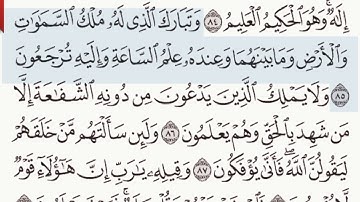 إِلَٰهٌ ۚ وَهُوَ الْحَكِيمُ الْعَلِيمُ ﴿٨٤﴾ وَتَبَارَكَ الَّذِي لَهُ مُلْكُ السَّمَاوَاتِ
وَالْأَرْضِ وَمَا بَيْنَهُمَا وَعِندَهُ عِلْمُ السَّاعَةِ وَإِلَيْهِ تُرْجَعُونَ
﴿٨٥﴾ وَلَا يَمْلِكُ الَّذِينَ يَدْعُونَ مِن دُونِهِ الشَّفَاعَةَ إِلَّا
مَن شَهِدَ بِالْحَقِّ وَهُمْ يَعْلَمُونَ ﴿٨٦﴾ وَلَئِن سَأَلْتَهُم مَّنْ خَلَقَهُمْ
لَيَقُولُنَّ اللَّهُ ۖ فَأَنَّىٰ يُؤْفَكُونَ ﴿٨٧﴾ وَقِيلِهِ يَا رَبِّ إِنَّ هَٰؤُلَاءِ قَوْمٌ